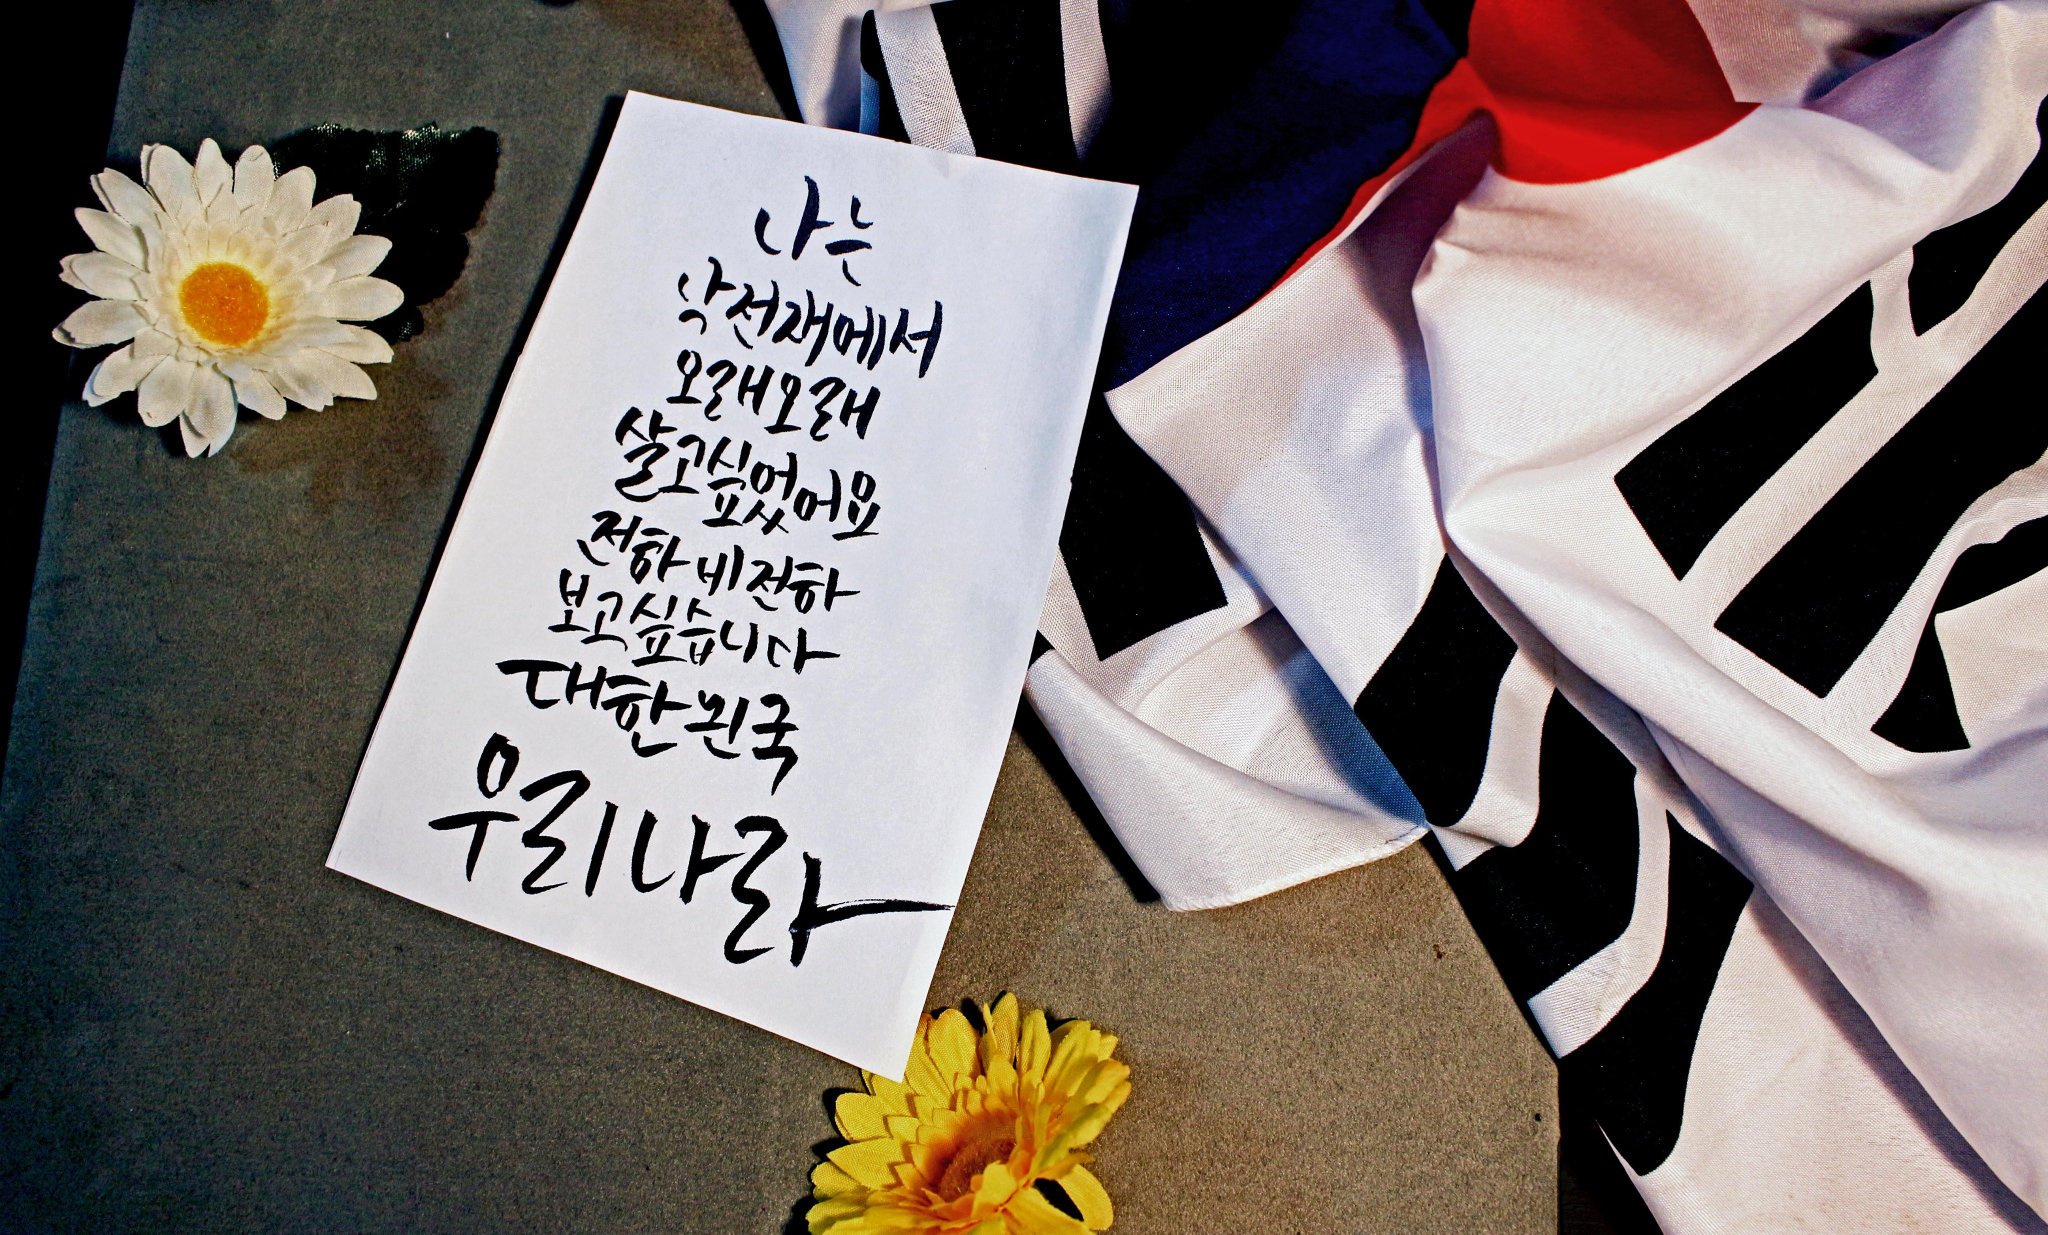 나는
낙선재에서
오래오래
살고싶었어요
전하 비전하
보고싶습니다
대한민국
우리나라